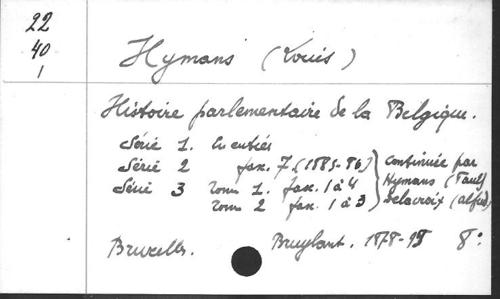 22
40
1
Hymans (Louis)
Histoire parlementaire de la Belgique.
Série 1.
Série 2 fasc. 7 (1885-86) continuée par
Série 3 Tom 1. fasc. 1 à 4 Hymans (Paul)
Tom 2 fasc. 1 à 3 Delacroix (Alfred)
Bruxelles. Bruylant. 1878- 8°